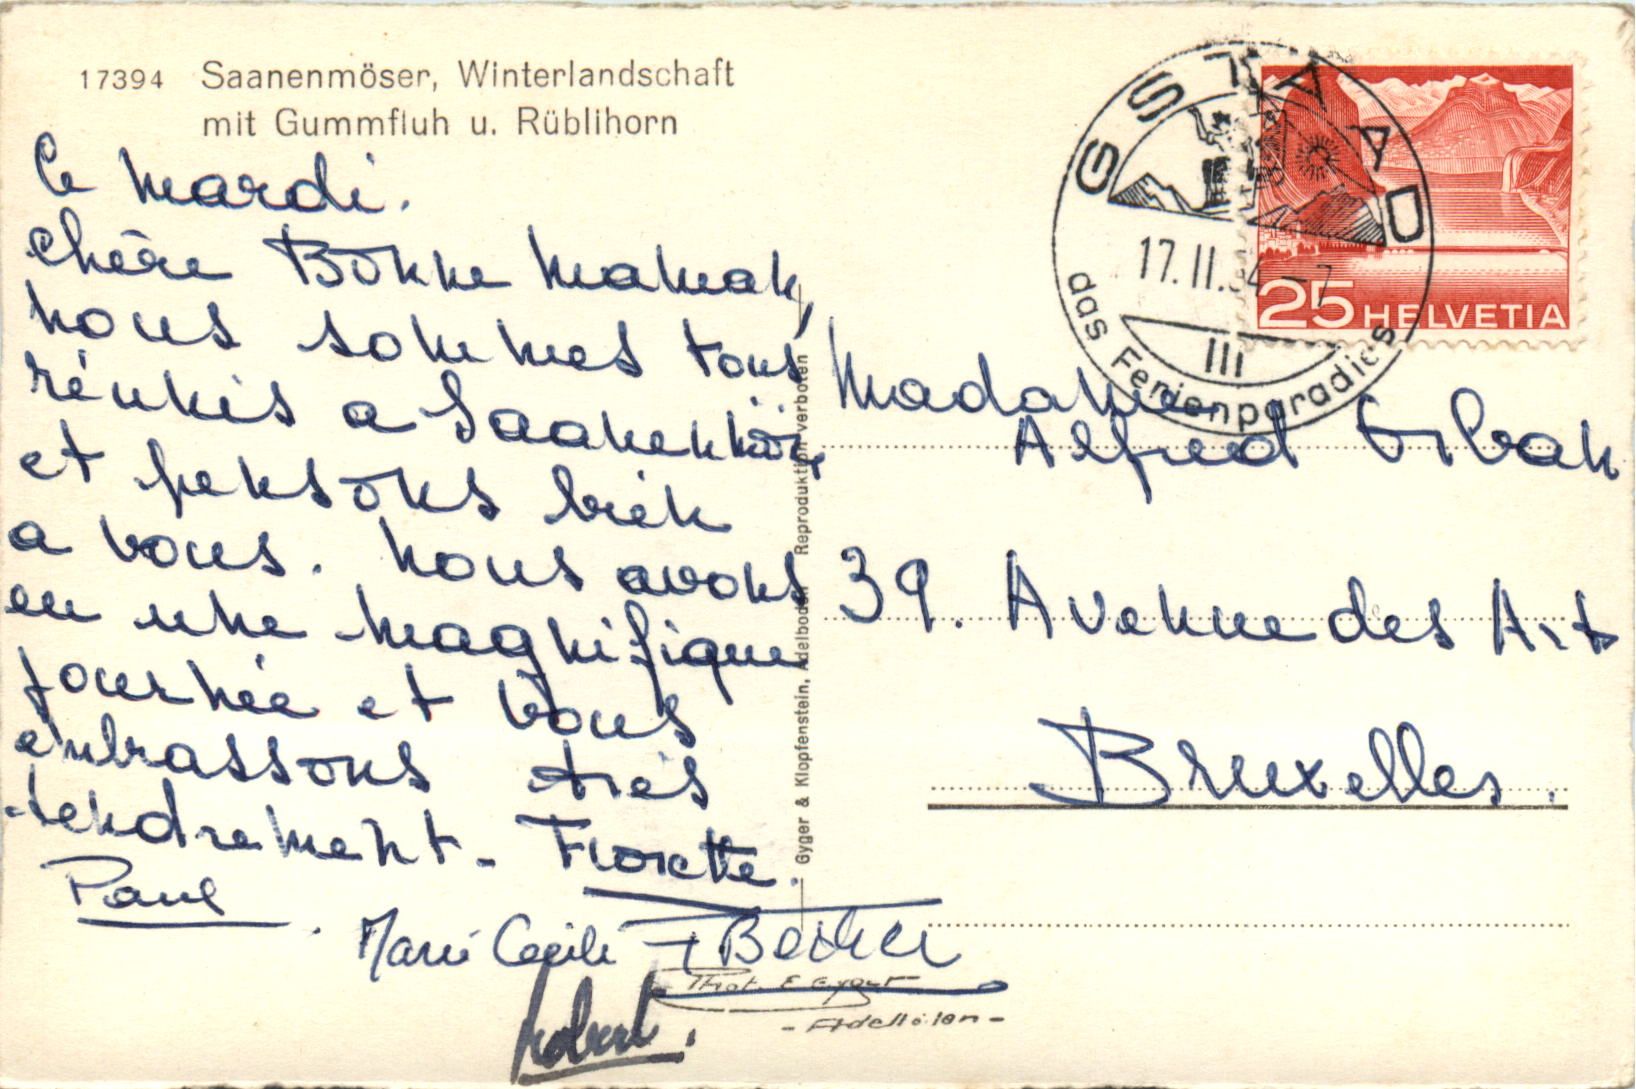 17394 Saanenmöser, Winterlandschaft
mit Gummfluh u. Rüblihorn
Ce mardi.
Chère Bonne Maman,
nous sommes tous
réunis a Saanenmöser
et pensons bien
a vous. Nous avons
eu une magnifique
journée et vous
embrassons très
tendrement - Fiorette.
Paul.
Marie Cecile
F Becker
Robert.
Gyger & Klopfenstein, Adelboden Reproduktion verboten
GSTAAD
17.II.54-7
III
das Ferienparadies
25 HELVETIA
Madame
Alfred Orban
39. Avenue des Arts
Bruxelles.
Phot. E. Gyger
- Adelboden -